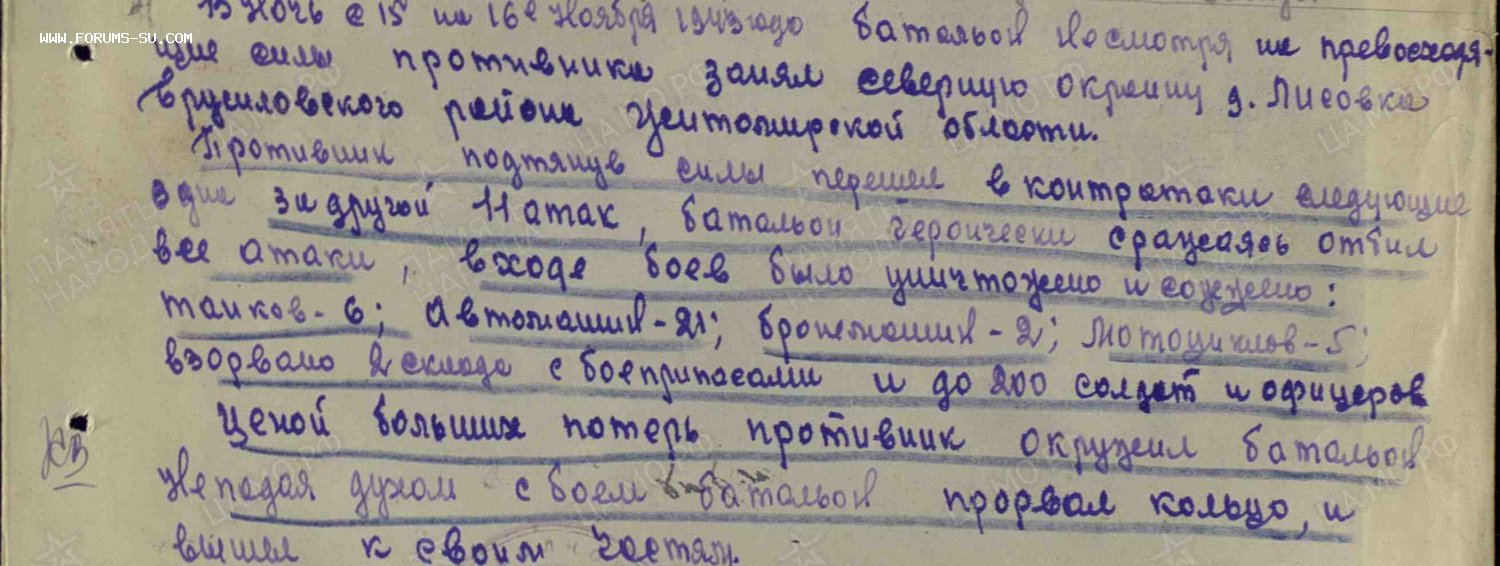 В ночь с 15 на 16е ноября 1943 года батальон несмотря на превосходя-
WWW.FORUMS-SU.COM
щие силы противника занял северную окраину д. Лисовка
Брусиловского района Житомирской области.
Противник подтянув силы перешел в контратаки следующие
за другой 11 атак, батальон героически сражаясь отбил
все атаки, входе боев было уничтожено и сожжено:
танков-6; Автомашин-21; бронемашин-2; Мотоциклов-5;
взорвано 2 склада с боеприпасами и до 200 солдат и офицеров
Ценой больших потерь противник окружил батальон
Непадая духом с боем батальон прорвал кольцо, и
вышел к своим частям.
ПАМЯТЬ НАРОДА
ЦА МО РФ